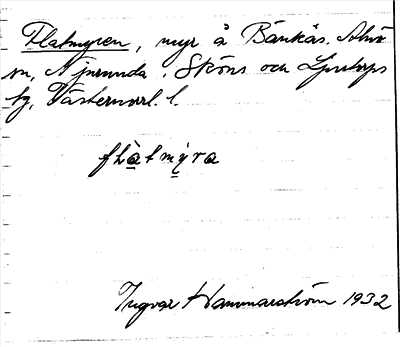 Flatmyren, myr å Bänkås. Alnö
sn, Njurunda, Sköns och Ljustorps
tg, Västernorrl. l.
flatmyra
Ingvar Hammarström 1932